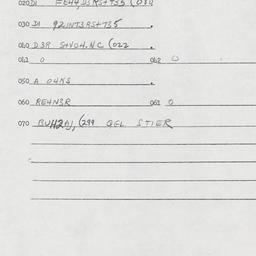 020 DI FE44, D3RS+T35 (031
030 DI 92INT3RS+T35 .
040 D3R S+V04.NC (022 .
041 0 042 0
050 A 04KS .
060 RE4N3R 061 0
070 BUH2AJ, (299 GEL STIER